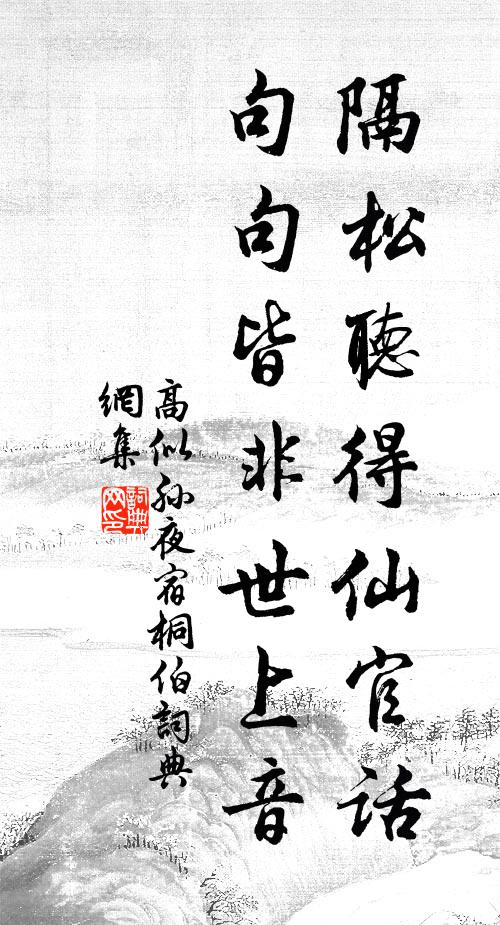 隔松聽得仙官話
句句皆非世上音
高似孙夜宿桐伯詞典
網集
詞典
网印